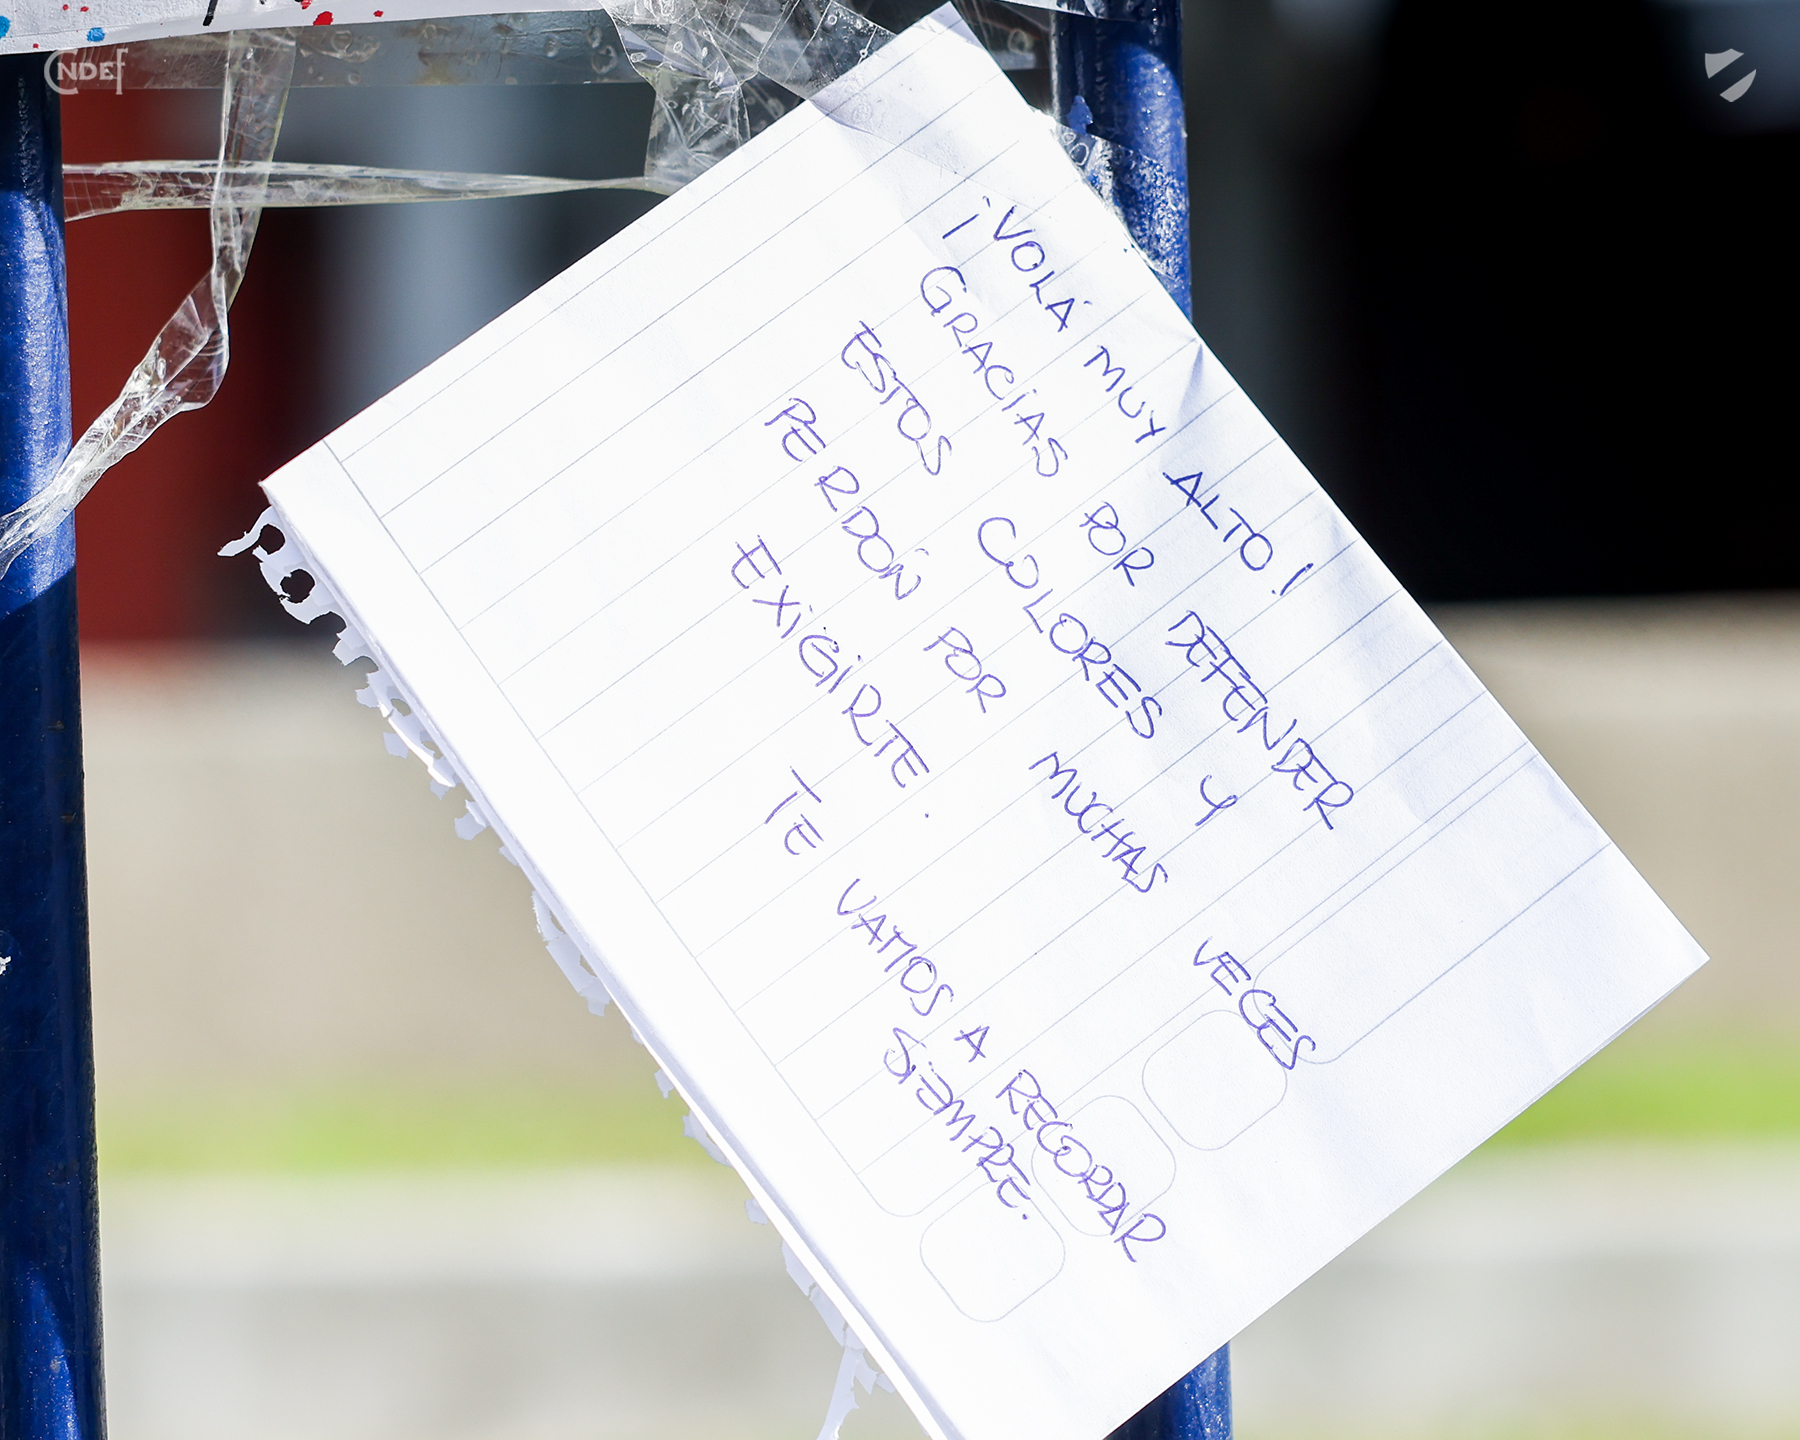 CNDEf
¡VOLÁ MUY ALTO!
GRACIAS POR DEFENDER
ESTOS COLORES Y
PERDÓN POR MUCHAS VECES
EXIGIRTE.
TE VAMOS A RECORDAR
SIEMPRE.